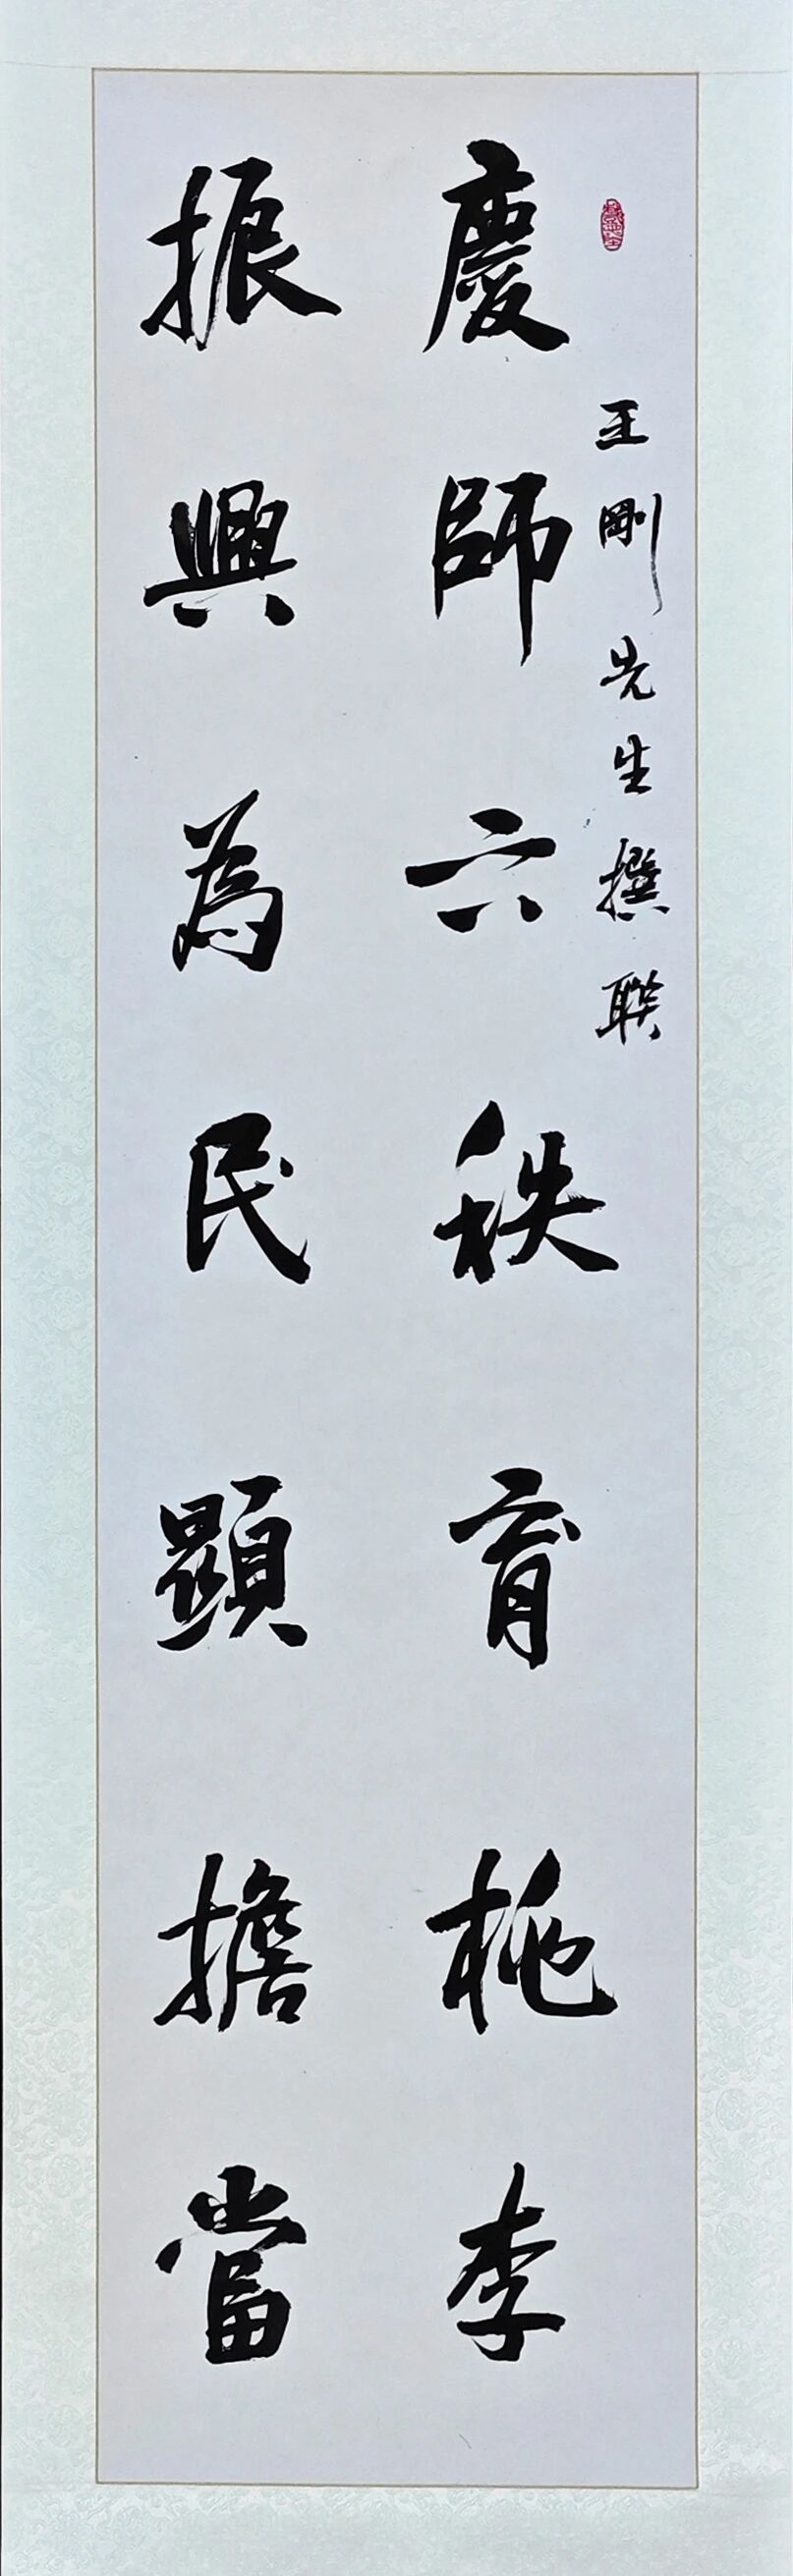 王剛先生撰联
慶師六秩育桃李
振興為民顯擔當